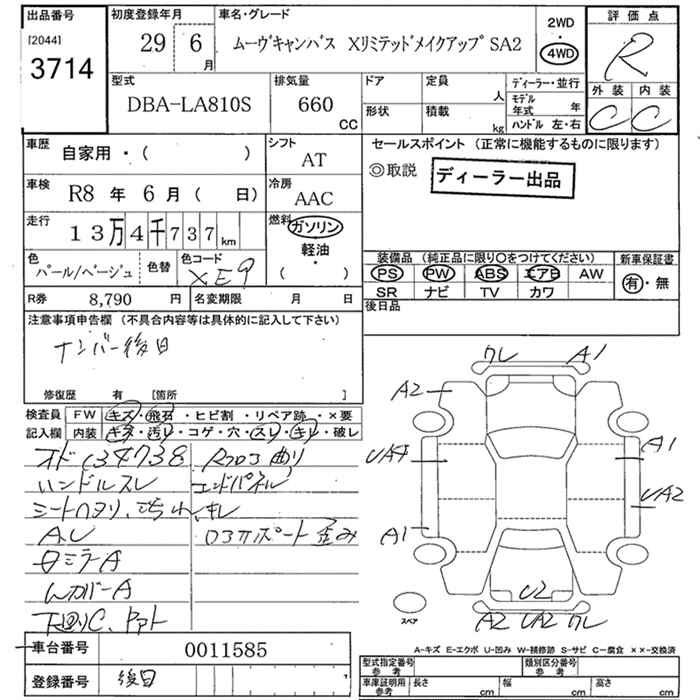 出品番号
[2044]
3714
初度登録年月
29 6月
車名・グレード
ムーヴキャンバス XリミテッドメイクアップSA2
2WD
・
4WD
評価点
R
型式
DBA-LA810S
排気量
660
CC
ドア
形状
定員
人
積載
kg
ディーラー・並行
モデル
年式 年
ハンドル 左・右
外装 内装
C C
車歴
自家用・( )
シフト
AT
車検
R8 年 6 月 ( 日)
冷房
AAC
走行
13万4千737km
燃料
ガソリン
軽油
・
( )
色
パール/ベージュ
色替
色コード
XE9
R券 8,790 円
名変期限 月 日
セールスポイント (正常に機能するものに限ります)
◎取説
ディーラー出品
装備品 (純正品に限り○をつけてください)
PS PW ABS エアB AW
SR ナビ TV カワ
新車保証書
有・無
後日品
注意事項申告欄 (不具合内容等は具体的に記入して下さい)
ナンバー後日
修復歴 有 [箇所 ]
検査員
記入欄
FW キズ・飛石・ヒビ割・リペア跡・×要
内装 キズ・汚リ・コゲ・穴・スレ・キレ・破レ
オド134738
ハンドルスレ
シートヘタリ、ヨゴレ、キレ
AL
ミラーA
WカバーA
下廻りC
曲り
エンドパネル
歪み
ワレ A1
A2
UA4 A1
UA2
A1
U2
A2 UA2 ワレ
スペア
A-キズ E-エクボ U-凹み W-補修跡 S-サビ C-腐食 ××-交換済
車台番号 0011585
登録番号 後日
型式指定番号
参考
類別区分番号
参考
車庫証明用
参考
長さ cm
幅 cm
高さ cm